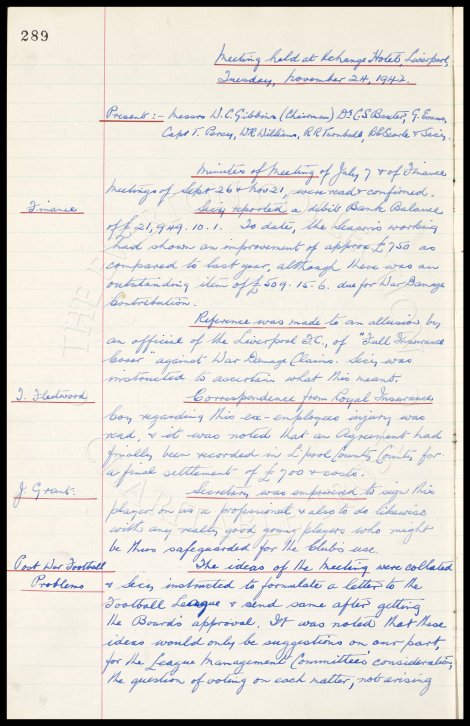 289
Meeting held at Exchange Hotel, Liverpool,
Tuesday, November 24, 1942.
Present :- Messrs W.C. Gibbins (Chairman) Dr C.S. Baxter, G. Evans,
Capt T. Percy, W.R. Williams, R.R. Turnbull, R.E. Searle & Secy.
Minutes of Meeting of July 7 & of Finance
Meetings of Sept 26 & Nov 21, were read & confirmed.
Finance
Secy reported a debit Bank Balance
of £21,949.10.1. To date, the Seasons working
had shown an improvement of approx £750 as
compared to last year, although there was an
outstanding item of £509.15.6. due for War Damage
Contribution.
Reference was made to an allusion by
an official of the Liverpool F.C., of "Full Insurance
Cover" against War Damage Claims. Secy was
instructed to ascertain what this meant.
T. Fleetwood
Correspondence from Royal Insurance
Coy regarding this ex-employees injury was
read, & it was noted that an Agreement had
finally been recorded in L'pool County Courts for
a final settlement of £700 & costs.
J. Grant.
Secretary was empowered to sign this
player on as a professional & also to do likewise
with any really good young players who might
be thus safeguarded for the Club's use.
Post War Football
Problems
The ideas of the meeting were collated
& Secy instructed to formulate a letter to the
Football League & send same after getting
the Board's approval. It was noted that these
ideas would only be suggestions on our part,
for the League Management Committees consideration,
the question of voting on each matter, not arising